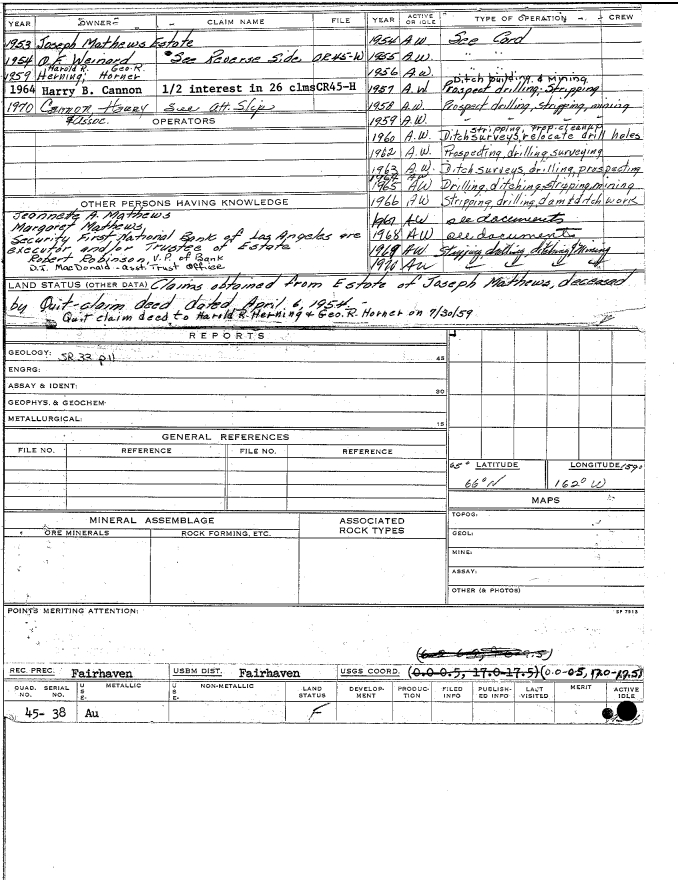 YEAR OWNER CLAIM NAME FILE YEAR ACTIVE OR IDLE TYPE OF OPERATION CREW
1953 Joseph Mathews Estate 1954 A.W See Card
1954 O.F. Weinard See Reverse Side OR45-W 1955 A.W. " "
Harold R. Geo. R.
1959 Herning; Horner 1956 A.W. " "
Ditch building & mining
1964 Harry B. Cannon 1/2 interest in 26 clms CR45-H 1957 A.W Prospect drilling; Stripping
1970 Cannon, Harry See Att. Slip 1958 A.W. Prospect drilling, stripping, mining
& Assoc. 1959 A.W. " " "
OPERATORS
stripping, prep. cleanup
1960 A.W. Ditch surveys, relocate drill holes
1962 A.W. Prospecting, drilling, surveying
1963 A.W. Ditch surveys, drilling, prospecting
1964 AW
1965 AW Drilling, ditching, stripping, mining
OTHER PERSONS HAVING KNOWLEDGE 1966 AW Stripping, drilling, dam & ditch work
Jeannette A. Mathews
Margaret Mathews 1967 AW see documents
Security First National Bank of Los Angeles are 1968 AW see documents
executor and/or Trustee of Estate. 1969 AW Stripping, drilling, ditching & Mining
Robert Robinson, V.P. of Bank
D.J. MacDonald - asst. Trust Office 1970 AW
LAND STATUS (OTHER DATA) Claims obtained from Estate of Joseph Mathews, deceased
by Quit-claim deed dated April 6, 1954.-
Quit claim deed to Harold R. Herning & Geo. R. Horner on 7/30/59
REPORTS
GEOLOGY: SR 33 p11 45
ENGRG:
ASSAY & IDENT: 30
GEOPHYS. & GEOCHEM-
METALLURGICAL: 15
GENERAL REFERENCES
FILE NO. REFERENCE FILE NO. REFERENCE
65° LATITUDE LONGITUDE 159°
66° N 162° W
MAPS
MINERAL ASSEMBLAGE ASSOCIATED ROCK TYPES TOPOG:
ORE MINERALS ROCK FORMING, ETC. GEOL:
MINE:
ASSAY:
OTHER (& PHOTOS)
POINTS MERITING ATTENTION: SP 7513
REC. PREC. Fairhaven USBM DIST. Fairhaven USGS COORD. (0.0-0.5, 17.0-17.5) (0.0-0.5, 17.0-17.5)
QUAD. NO. SERIAL NO. USE. METALLIC USE. NON-METALLIC LAND STATUS DEVELOPMENT PRODUCTION FILED INFO PUBLISHED INFO LAST VISITED MERIT ACTIVE IDLE
45- 38 Au F